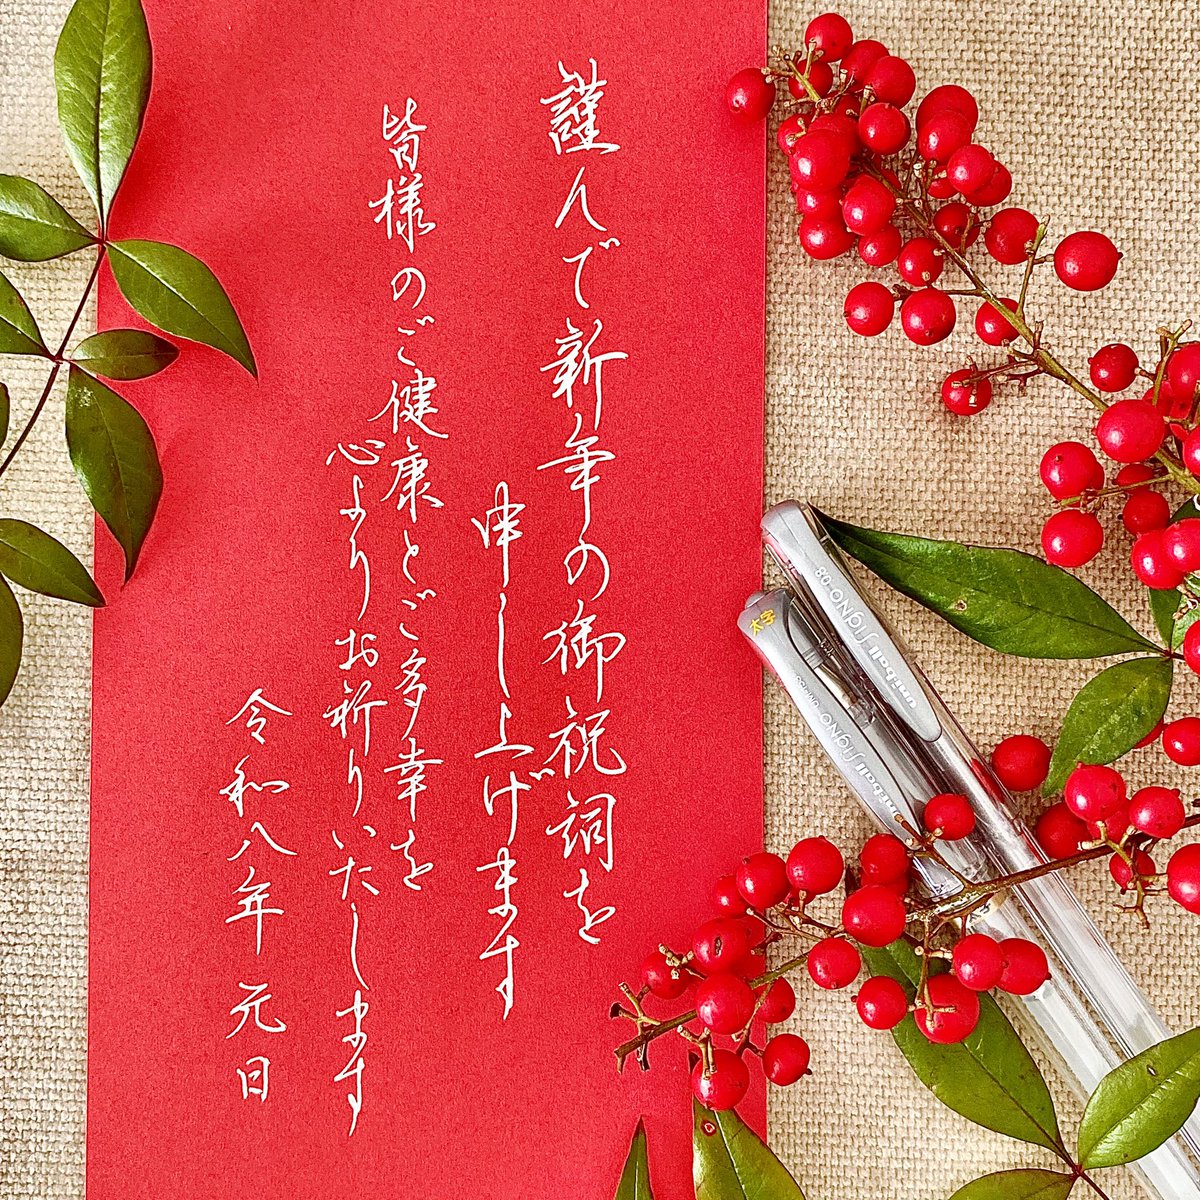 謹んで新年の御祝詞を
申し上げます
皆様のご健康とご多幸を
心よりお祈りいたします
令和八年元日
uni-ball SigNO-08
太字
uni-ball SigNO